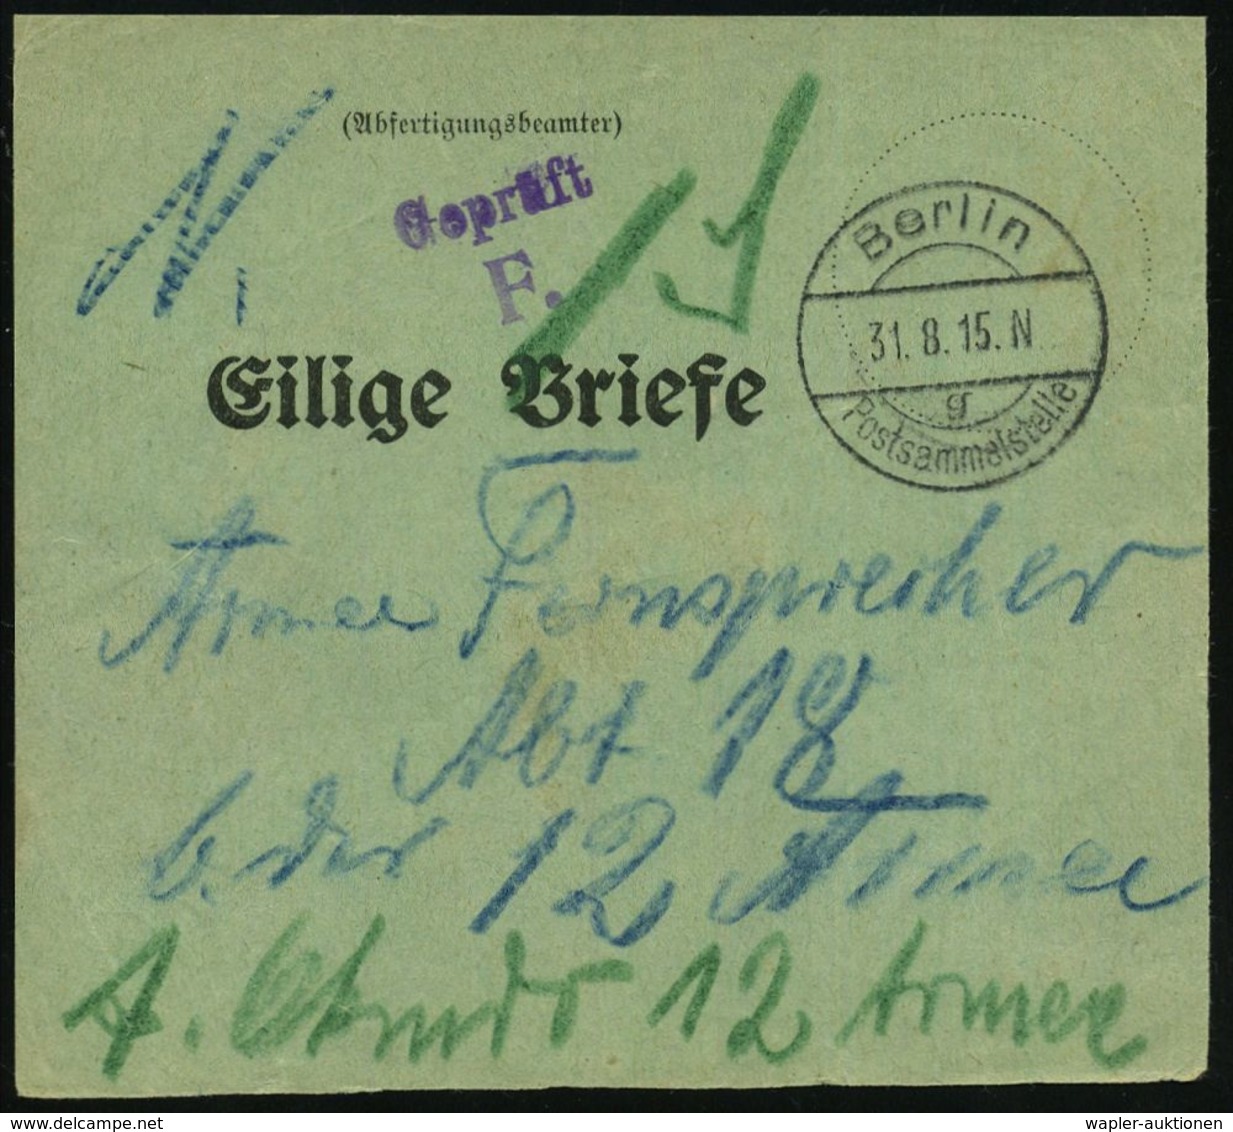 (Abfertigungsbeamter)
Geprüft
F.
Berlin
31. 8. 15. N
g
Postsammelstelle
Eilige Briefe
Armee Fernsprecher
Abt 18
b. der 12 Armee
12 Armee
wapler-auktionen